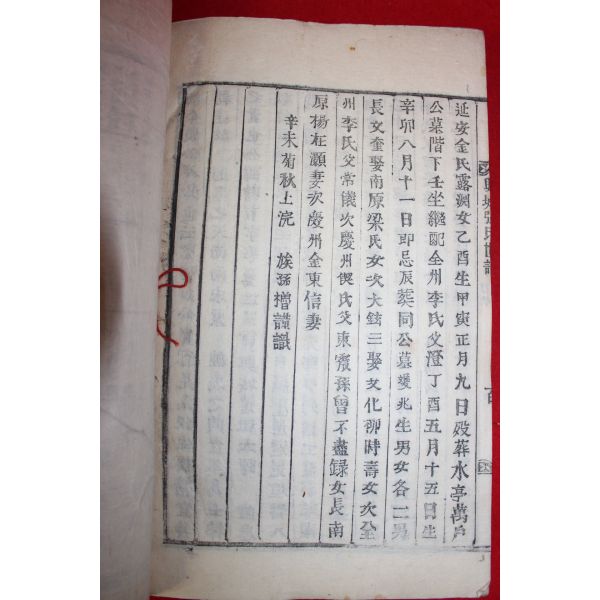 延安金氏露澗女乙酉生甲寅正月九日歿葬水亭萬戶
公墓階下壬坐繼配全州李氏父澄丁酉五月十五日生
辛卯八月十一日卽忌辰葬同公墓雙兆生男女各二男
長文奎娶南原梁氏女次大鉉三娶文化柳時壽女次全
州李氏父常儀次慶州崔氏父東賓孫曾不盡録女長南
原楊在灝妻次慶州金東信妻
辛未菊秋上浣 族孫 謹識
張氏世譜